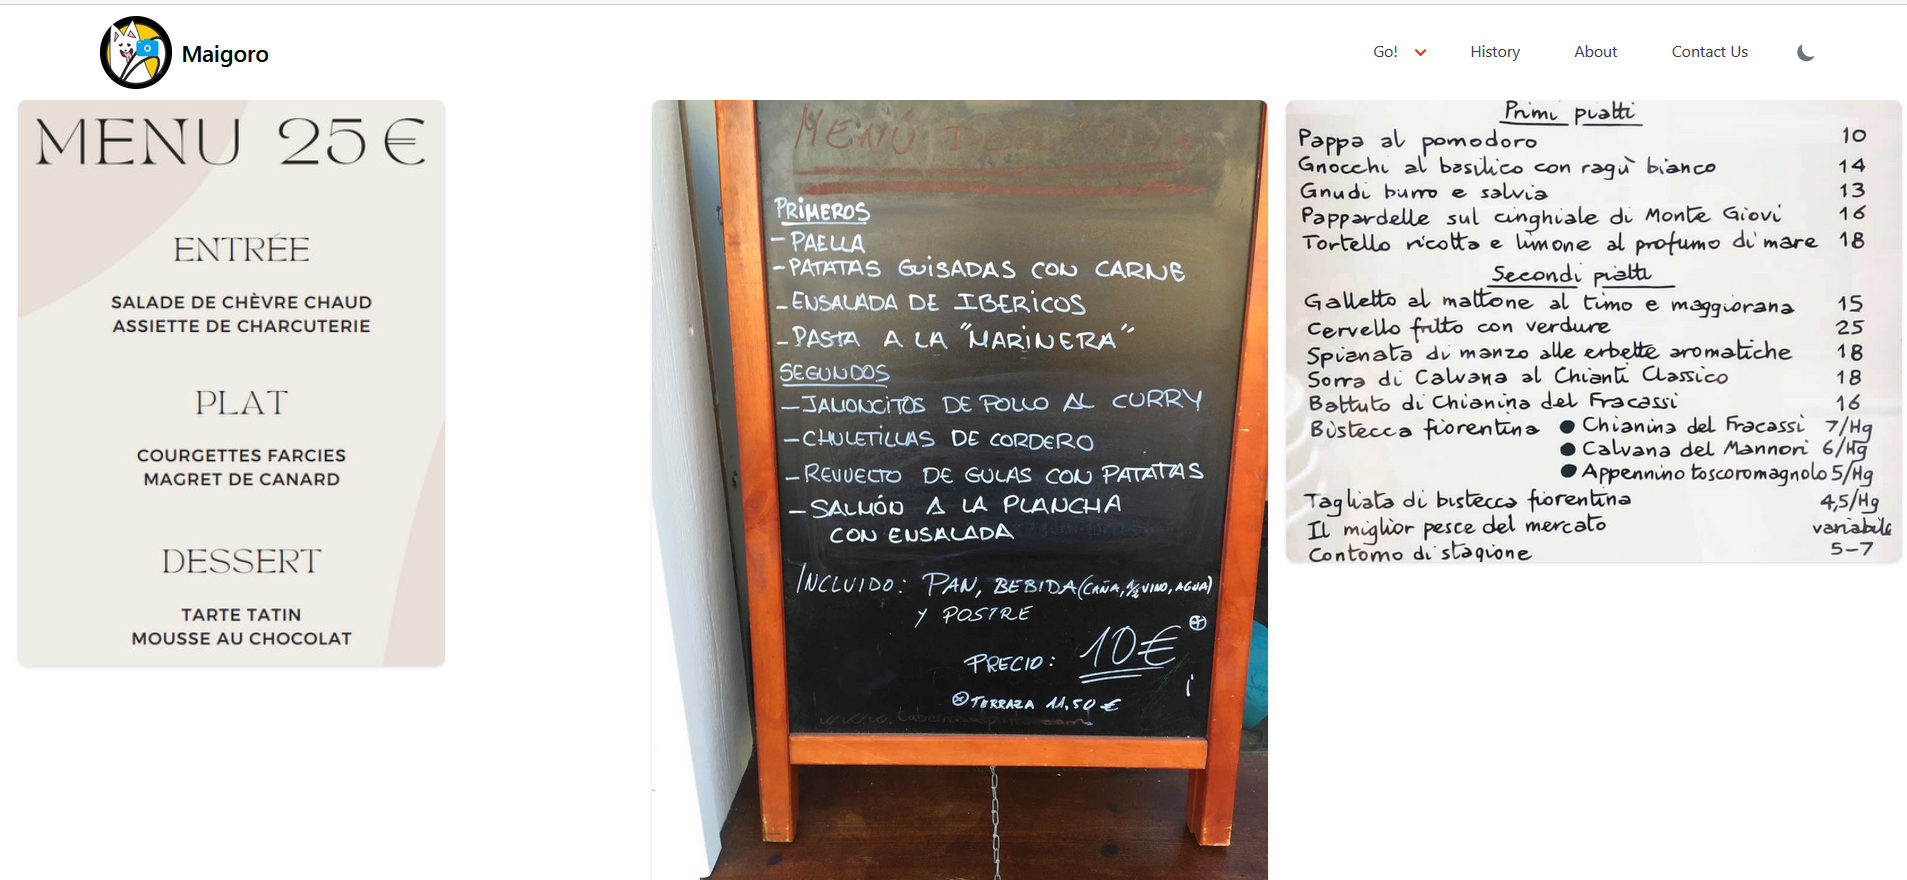 Maigoro
Go!
History
About
Contact Us
MENU 25€
ENTRÉE
SALADE DE CHÈVRE CHAUD
ASSIETTE DE CHARCUTERIE
PLAT
COURGETTES FARCIES
MAGRET DE CANARD
DESSERT
TARTE TATIN
MOUSSE AU CHOCOLAT
MENÚ DEL DÍA
PRIMEROS
- PAELLA
- PATATAS GUISADAS CON CARNE
- ENSALADA DE IBERICOS
- PASTA A LA "MARINERA"
SEGUNDOS
- JAMONCITOS DE POLLO AL CURRY
- CHULETILLAS DE CORDERO
- REVUELTO DE GULAS CON PATATAS
- SALMÓN A LA PLANCHA
CON ENSALADA
INCLUIDO: PAN, BEBIDA (CAÑA, 1/2 VINO, AGUA)
Y POSTRE
PRECIO: 10€
TERRAZA 11,50 €
Primi piatti
Pappa al pomodoro 10
Gnocchi al basilico con ragù bianco 14
Gnudi burro e salvia 13
Pappardelle sul cinghiale di Monte Giovi 16
Tortello ricotta e limone al profumo di mare 18
Secondi piatti
Galletto al mattone al timo e maggiorana 15
Cervello fritto con verdure 25
Spianata di manzo alle erbette aromatiche 18
Sorra di Calvana al Chianti Classico 18
Battuto di Chianina del Fracassi 16
Bistecca fiorentina ● Chianina del Fracassi 7/Hg
● Calvana del Mannori 6/Hg
● Appennino toscoromagnolo 5/Hg
Tagliata di bistecca fiorentina 4,5/Hg
Il miglior pesce del mercato variabile
Contorno di stagione 5-7